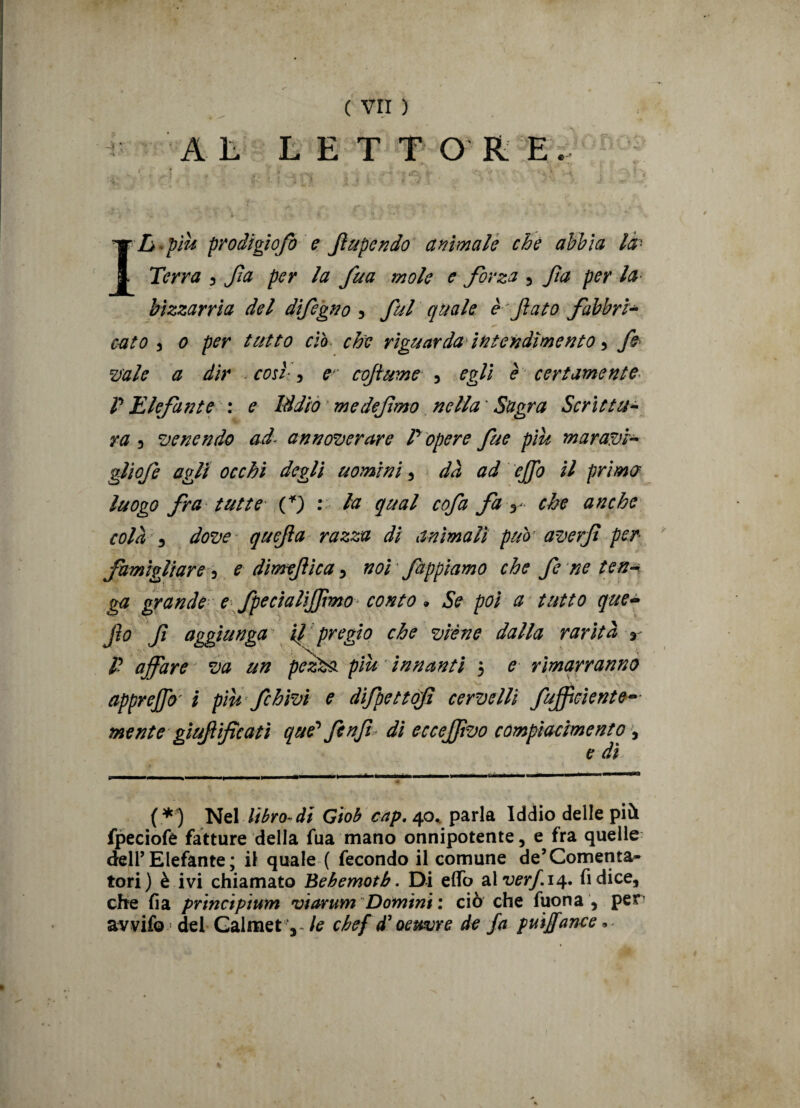 ( VII )
AL LETTORE.
IL più prodigioſo e ſtupendo animale che abbia la
Terra, ſia per la ſua mole e forza, ſia per la
bizzarria del diſegno, ſul quale è ſtato fabbri-
cato, o per tutto ciò che riguarda intendimento, ſe
vale a dir così, e coſtume, egli è certamente
l' Elefante : e Iddio medeſimo nella Sagra Scrittu-
ra, venendo ad annoverare l' opere ſue più maravi-
glioſe agli occhi degli uomini, dà ad eſſo il primo
luogo fra tutte (*) : la qual coſa fa, che anche
colà, dove queſta razza di animali può averſi per
famigliare, e dimeſtica, noi ſappiamo che ſe ne ten-
ga grande e ſpecialiſſimo conto. Se poi a tutto que-
ſto ſi aggiunga il pregio che viene dalla rarità,
l' affare va un pezzo più innanti ; e rimarranno
appreſſo i più ſchivi e diſpettoſi cervelli ſufficiente-
mente giuſtificati que' ſenſi di ecceſſivo compiacimento,
e di
(*) Nel libro di Giob cap. 40. parla Iddio delle più
ſpecioſe fatture della ſua mano onnipotente, e fra quelle
dell' Elefante; il quale ( ſecondo il comune de' Comenta-
tori ) è ivi chiamato Behemoth. Di eſſo al verſ. 14. ſi dice,
che ſia principium viarum Domini: ciò che ſuona, per
avviſo del Calmet, le chef d' oeuvre de ſa puiſſance.